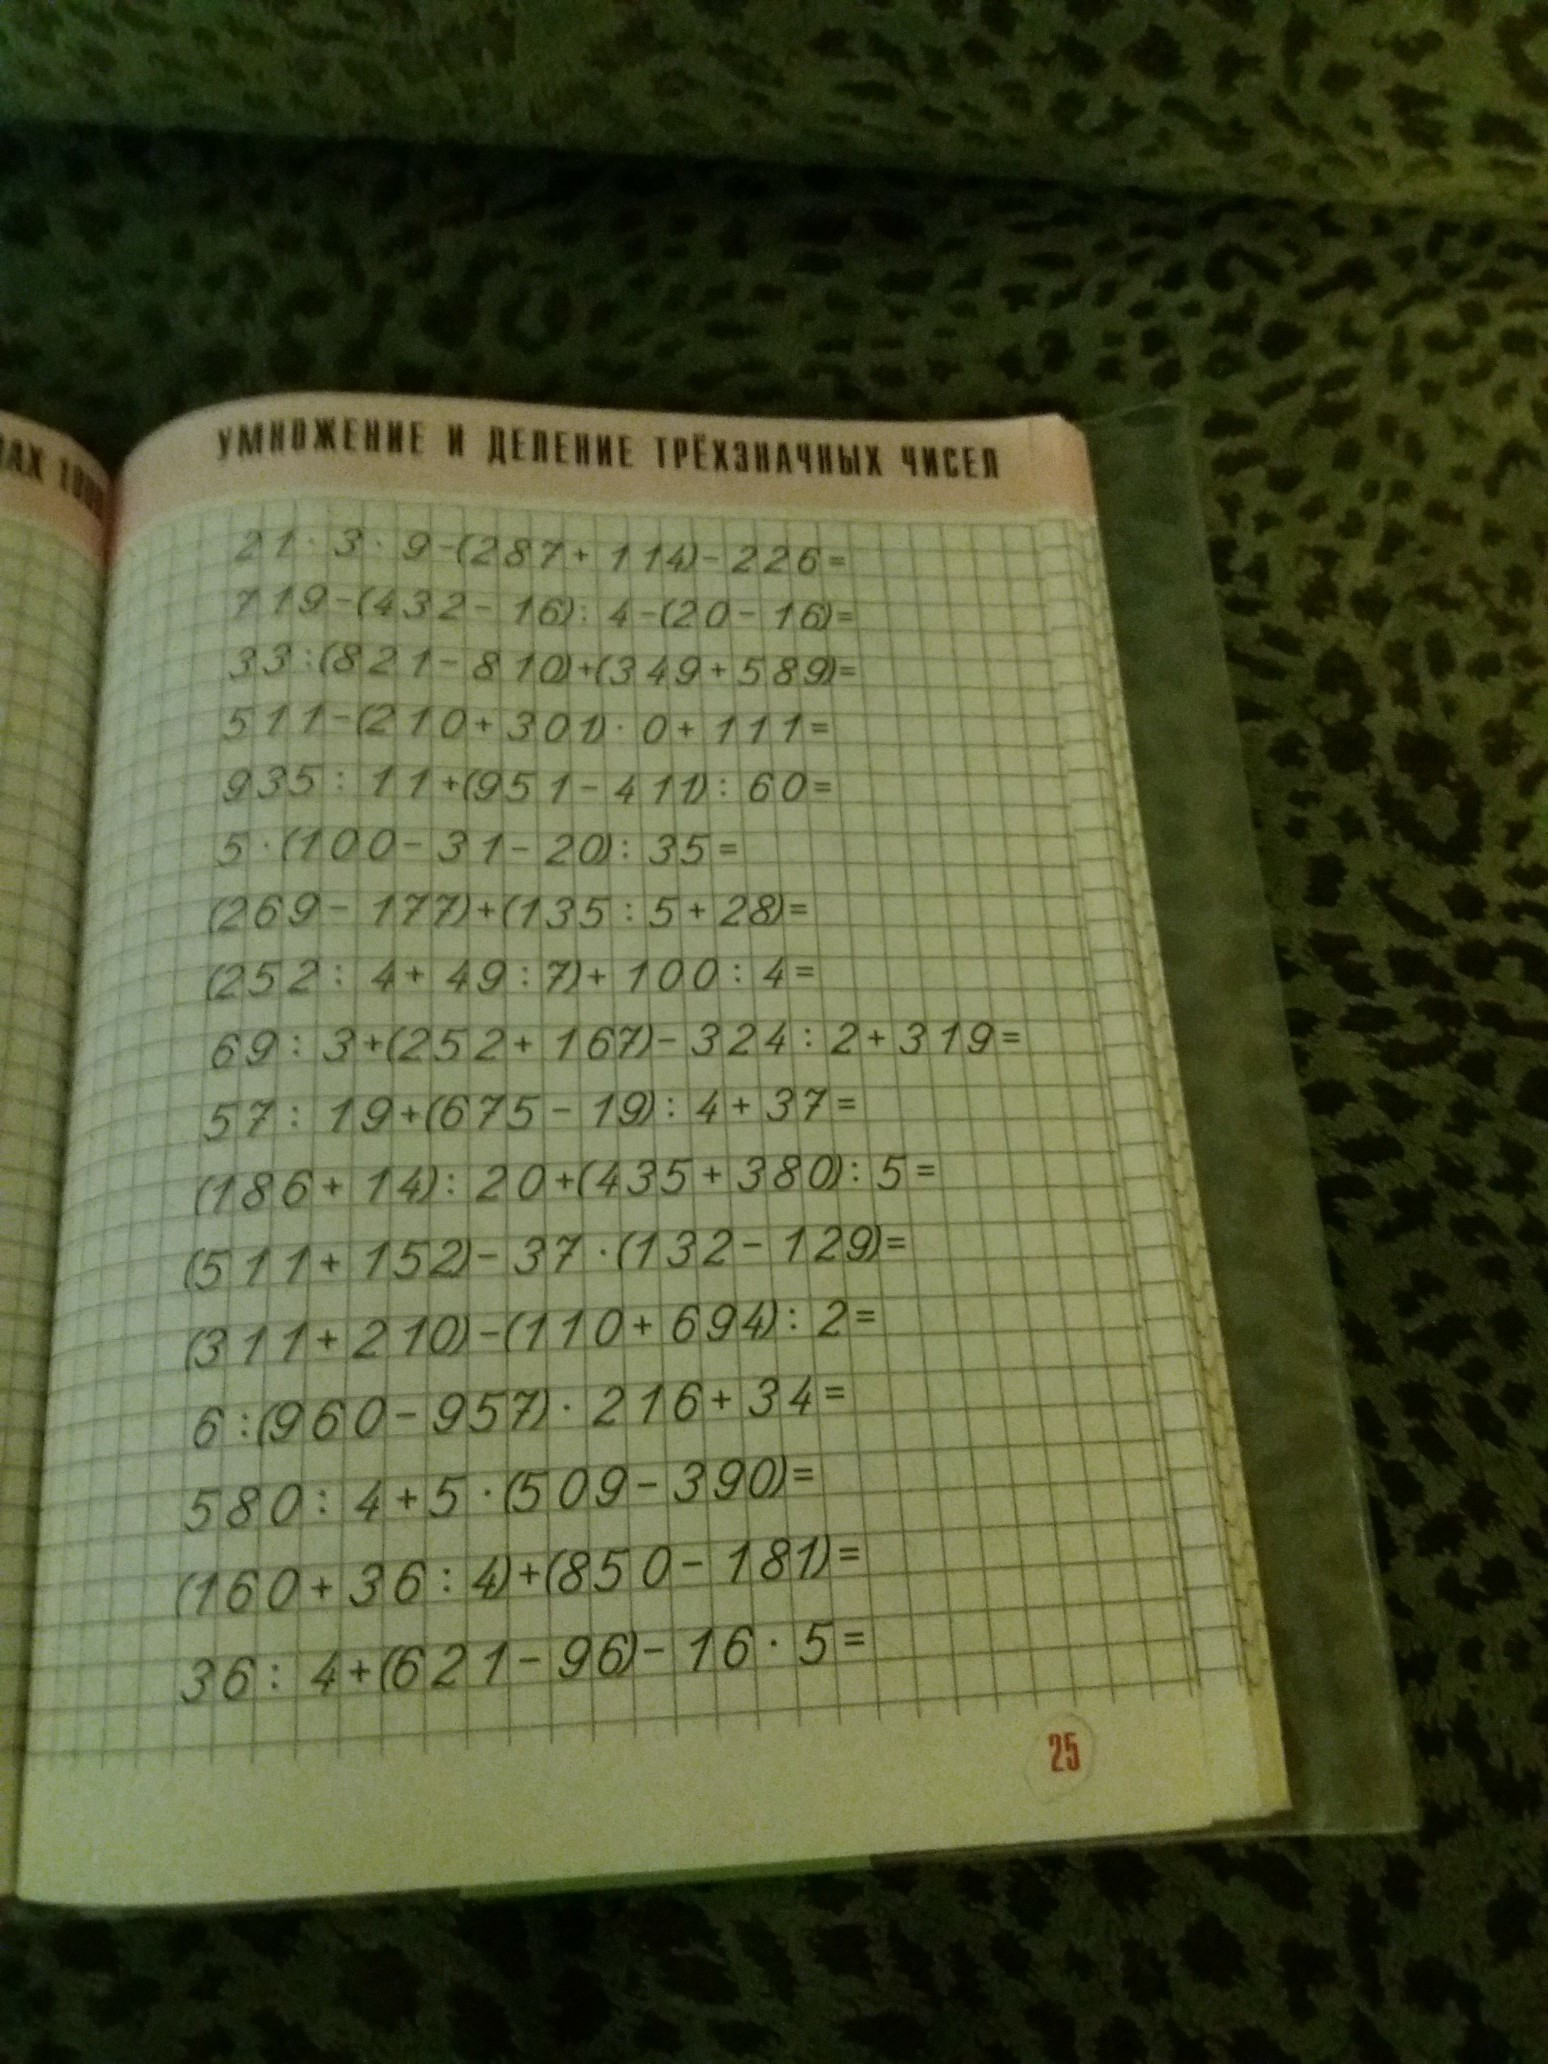 ЛАХ 1000
УМНОЖЕНИЕ И ДЕЛЕНИЕ ТРЁХЗНАЧНЫХ ЧИСЕЛ
21·3·9-(287+114)-226=
719-(432-16):4-(20-16)=
33:(821-810)+(349+589)=
511-(210+301)·0+111=
935:11+(951-411):60=
5·(100-31-20):35=
(269-177)+(135:5+28)=
(252:4+49:7)+100:4=
69:3+(252+167)-324:2+319=
57:19+(675-19):4+37=
(186+14):20+(435+380):5=
(511+152)-37·(132-129)=
(311+210)-(110+694):2=
6:(960-957)·216+34=
580:4+5·(509-390)=
(160+36:4)+(850-181)=
36:4+(621-96)-16·5=
25